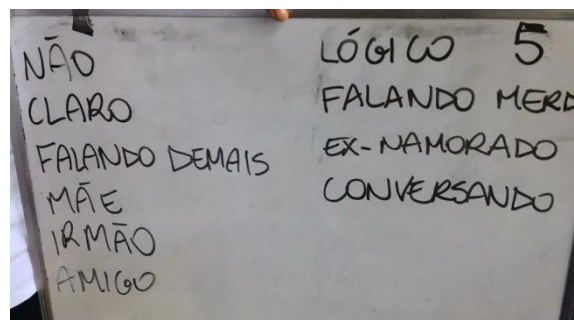 NÃO
CLARO
FALANDO DEMAIS
MÃE
IRMÃO
AMIGO
LÓGICO 5
FALANDO MERD
EX-NAMORADO
CONVERSANDO